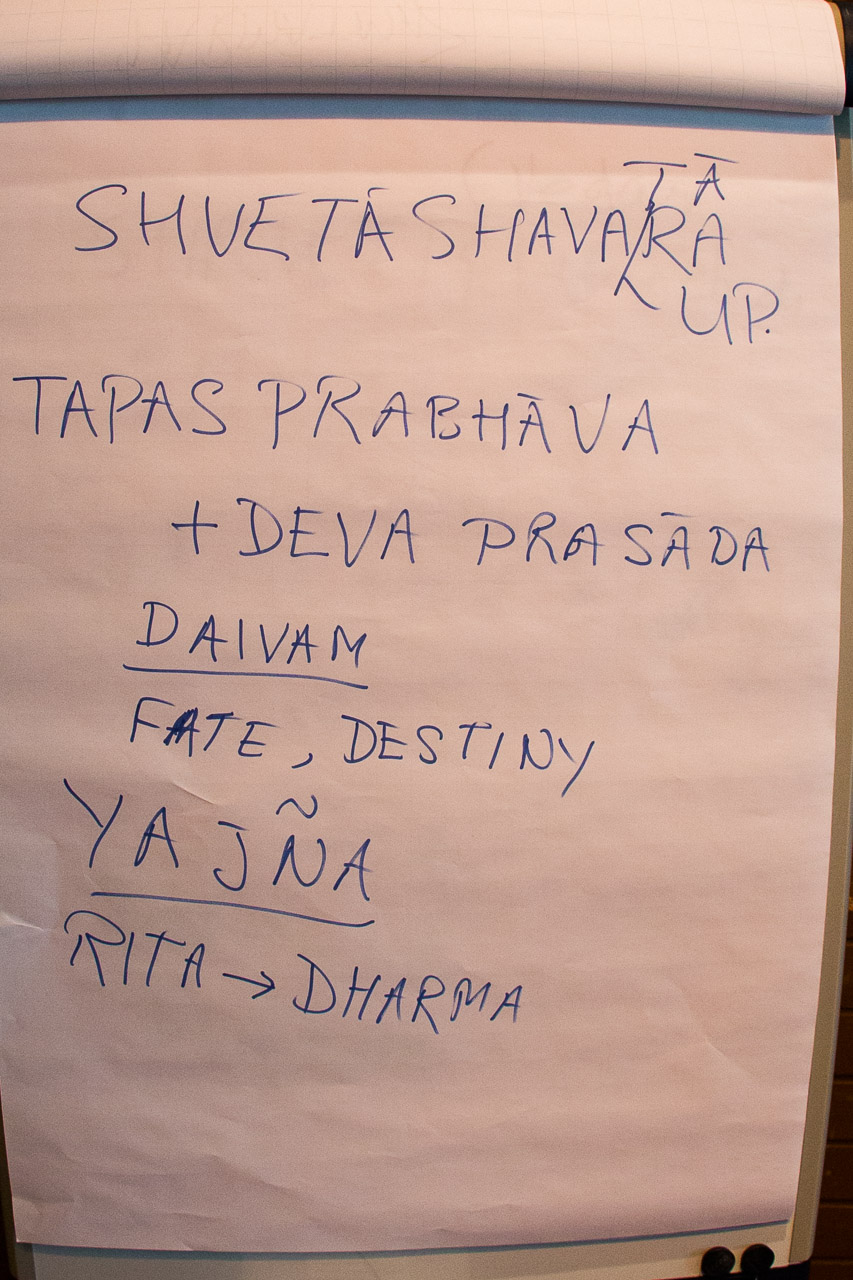 TĀ
SHVETĀSHAVARA
UP.
TAPAS PRABHĀVA
+ DEVA PRASĀDA
DAIVAM
FATE, DESTINY
YAJÑA
RITA → DHARMA